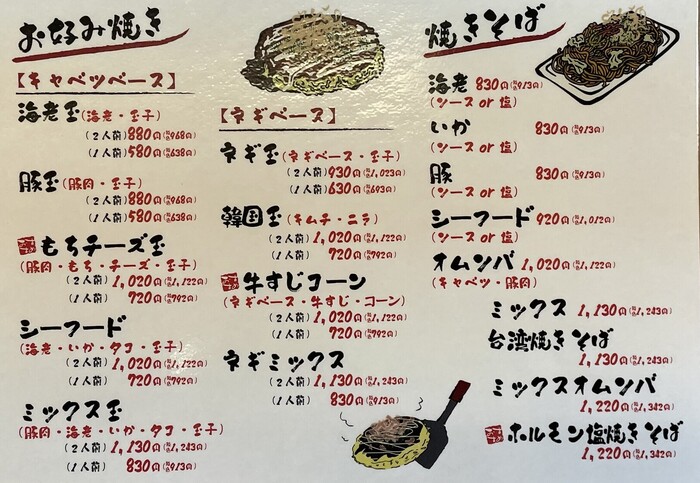 お好み焼き
【キャベツベース】
海老玉(海老・玉子)
(2人前)880円(税込968円)
(1人前)580円(税込638円)
豚玉(豚肉・玉子)
(2人前)880円(税込968円)
(1人前)580円(税込638円)
もちチーズ玉
(豚肉・もち・チーズ・玉子)
(2人前)1,020円(税込1,122円)
(1人前)720円(税込792円)
シーフード
(海老・いか・タコ・玉子)
(2人前)1,020円(税込1,122円)
(1人前)720円(税込792円)
ミックス玉
(豚肉・海老・いか・タコ・玉子)
(2人前)1,130円(税込1,243円)
(1人前)830円(税込913円)
【ネギベース】
ネギ玉(ネギベース・玉子)
(2人前)930円(税込1,023円)
(1人前)630円(税込693円)
韓国玉(キムチ・ニラ)
(2人前)1,020円(税込1,122円)
(1人前)720円(税込792円)
牛すじコーン
(ネギベース・牛すじ・コーン)
(2人前)1,020円(税込1,122円)
(1人前)720円(税込792円)
ネギミックス
(2人前)1,130円(税込1,243円)
(1人前)830円(税込913円)
焼きそば
海老 830円(税込913円)
(ソース or 塩)
いか 830円(税込913円)
(ソース or 塩)
豚 830円(税込913円)
(ソース or 塩)
シーフード 920円(税込1,012円)
(ソース or 塩)
オムソバ 1,020円(税込1,122円)
(キャベツ・豚肉)
ミックス 1,130円(税込1,243円)
台湾焼きそば
1,130円(税込1,243円)
ミックスオムソバ
1,220円(税込1,342円)
ホルモン塩焼きそば
1,220円(税込1,342円)